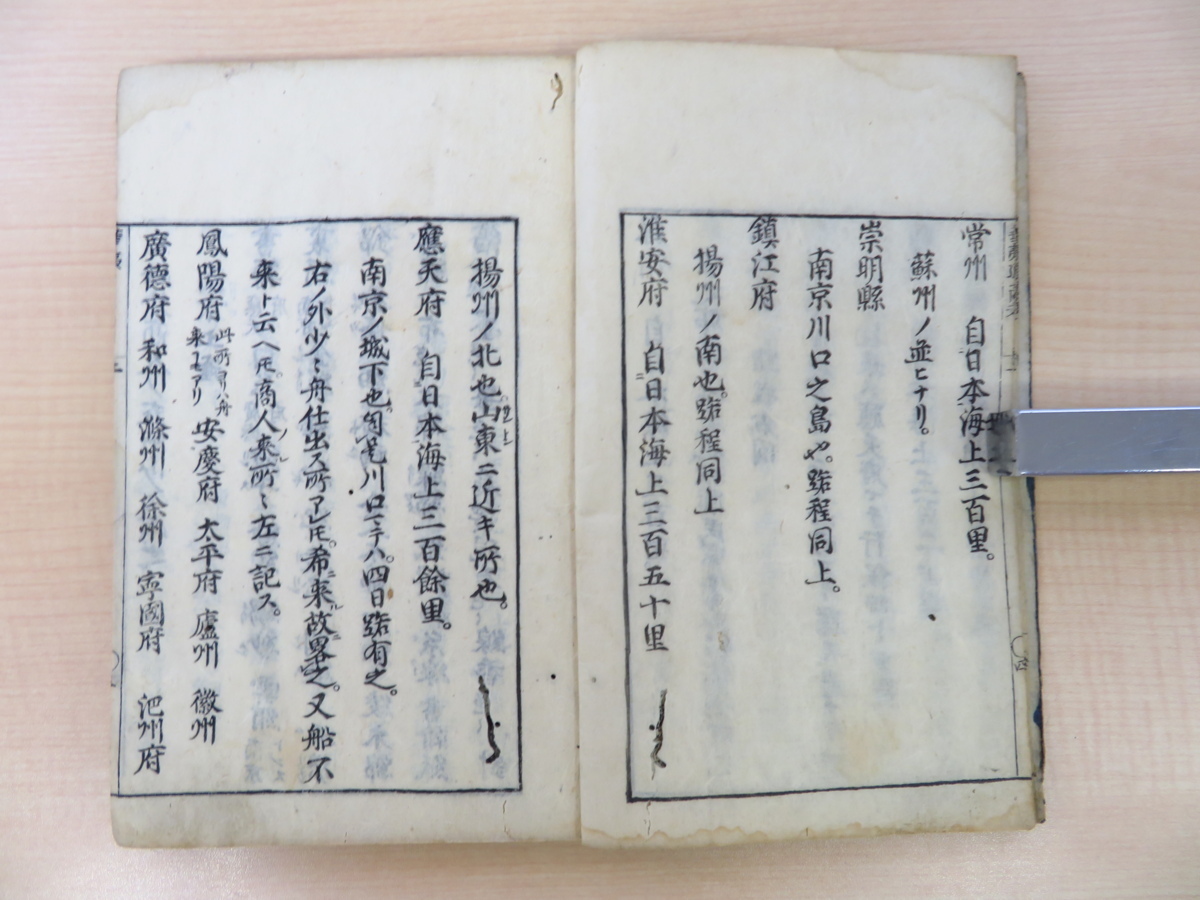 常州 自日本海上三百里。
蘇州ノ並ヒナリ。
崇明縣
南京川口之島也。路程同上。
鎮江府
揚州ノ南也。路程同上
淮安府 自日本海上三百五十里
揚州ノ北也。山東ニ近キ所也。
應天府 自日本海上三百餘里。
南京ノ城下也。川口ヨリハ。四日路有之。
右ノ外少々舟仕出ス所アレ𪜈。希ニ来ル故ニ畧之。又船不
来ト云ヘ𪜈。商人来ル所々左ニ記ス。
鳳陽府 此所ヨリハ舟来ルモアリ 安慶府 太平府 廬州 徽州
廣德府 和州 滁州 徐州 寧國府 池州府